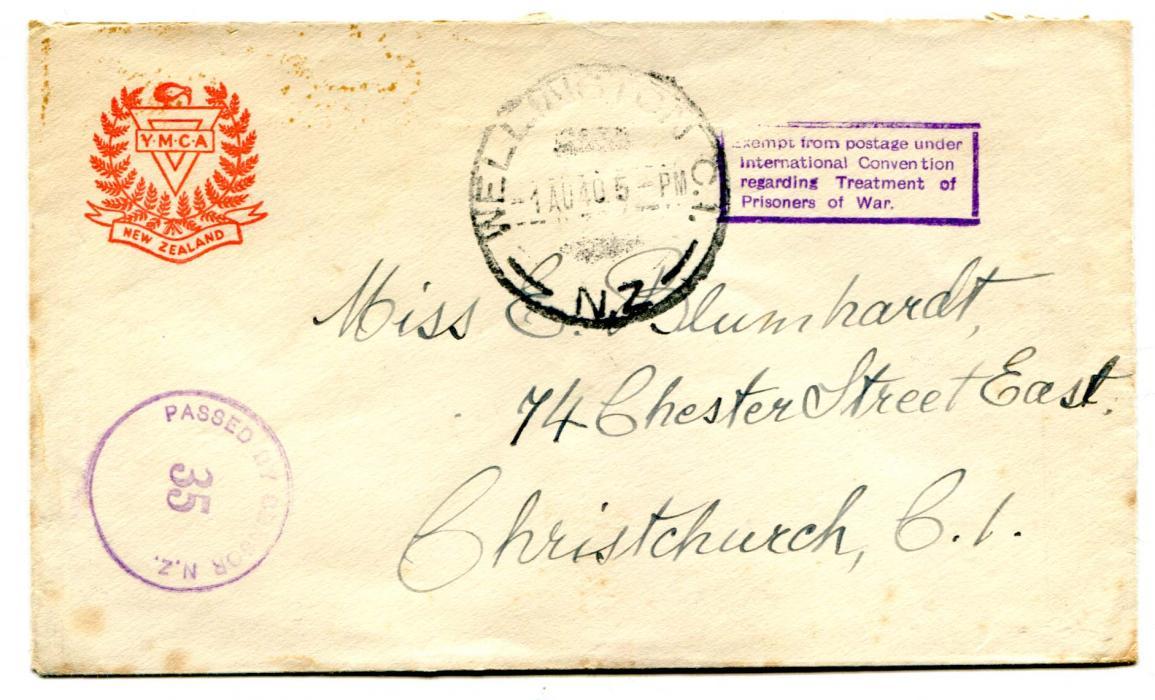 Y·M·C·A
NEW ZEALAND
WELLINGTON C.1.
-1 AU 40 5 - PM
N.Z
Exempt from postage under
International Convention
regarding Treatment of
Prisoners of War.
Miss E. Blumhardt,
74 Chester Street East.
Christchurch, C.1.
PASSED BY CENSOR N.Z.
35